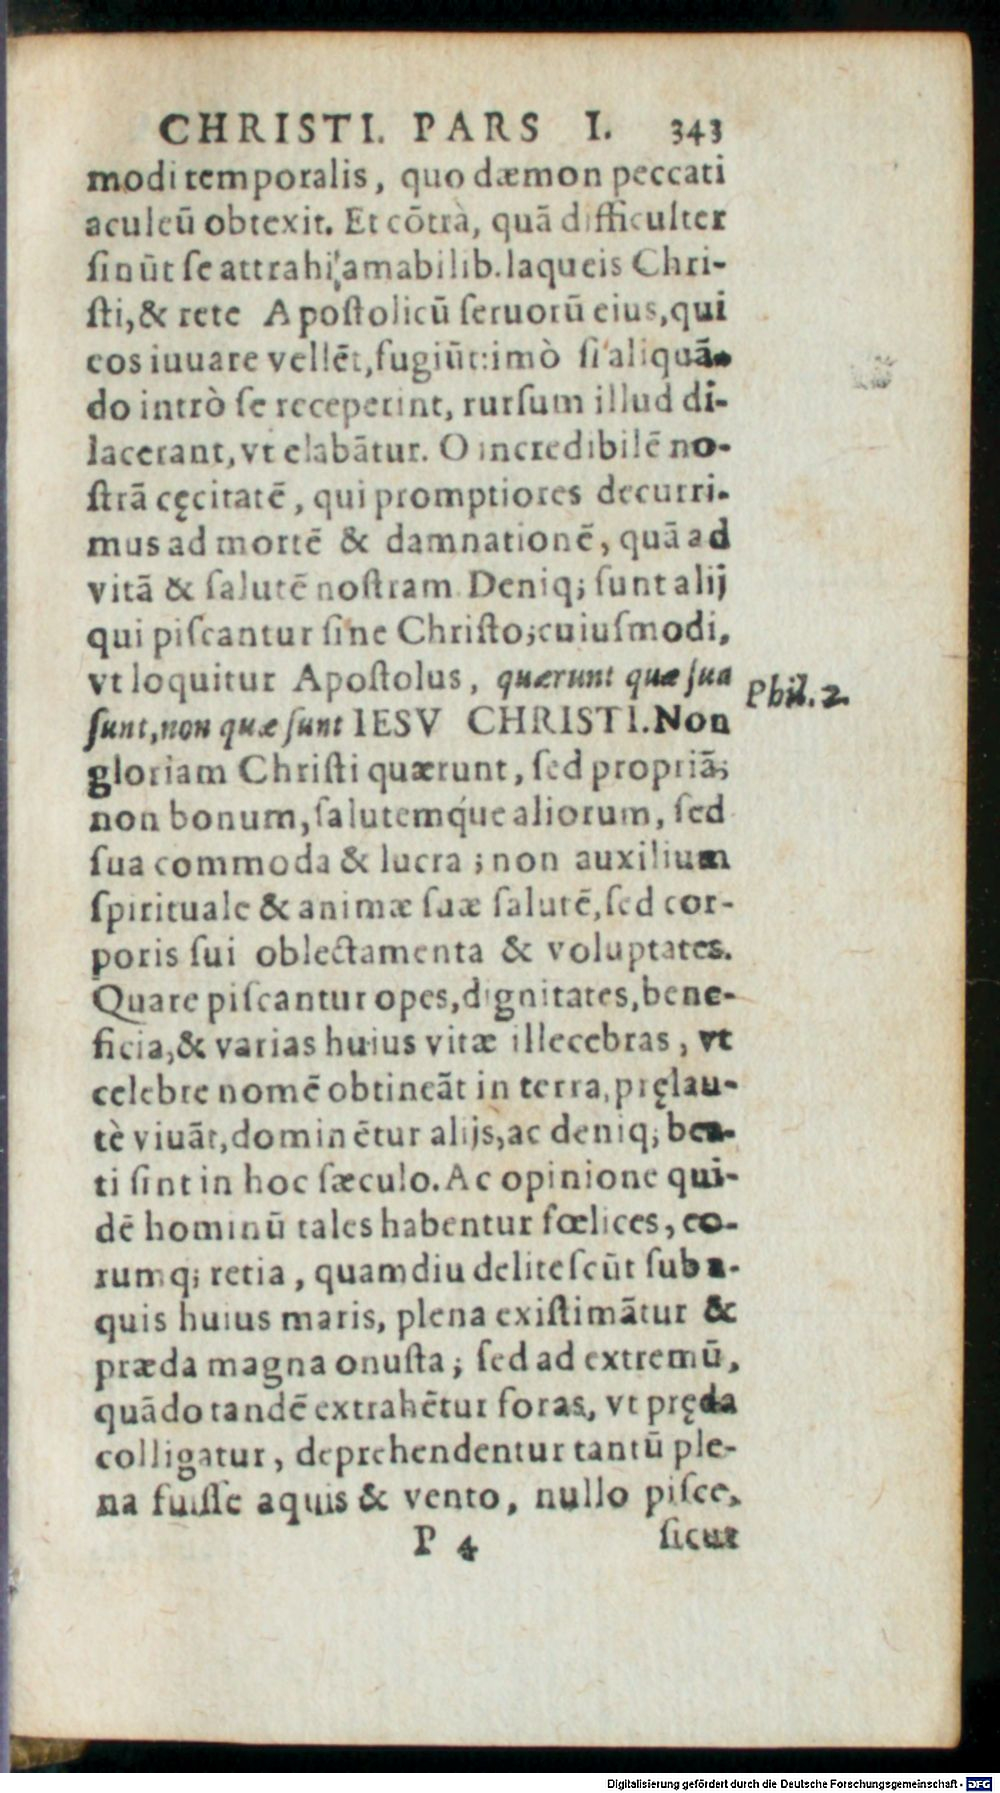 CHRISTI. PARS I. 343
modi temporalis, quo dæmon peccati
aculeū obtexit. Et cōtrà, quā difficulter
ſinūt ſe attrahi, amabilib. laqueis Chri-
ſti, & rete Apoſtolicū ſeruorū eius, qui
eos iuuare vellēt, fugiūt: imò ſi aliquā-
do intrò ſe receperint, rurſum illud di-
lacerant, vt elabātur. O incredibilē no-
ſtrā cęcitatē, qui promptiores decurri-
mus ad mortē & damnationē, quā ad
vitā & ſalutē noſtram. Deniq; ſunt alij
qui piſcantur ſine Chriſto; cuiuſmodi,
vt loquitur Apoſtolus, quærunt quæ ſua
ſunt, non quæ ſunt IESV CHRISTI. Non
Phil. 2.
gloriam Chriſti quærunt, ſed propriā;
non bonum, ſalutemq́ue aliorum, ſed
ſua commoda & lucra; non auxilium
ſpirituale & animæ ſuæ ſalutē, ſed cor-
poris ſui oblectamenta & voluptates.
Quare piſcantur opes, dignitates, bene-
ficia, & varias huius vitæ illecebras, vt
celebre nomē obtineāt in terra, pręlau-
tè viuāt, dominētur alijs, ac deniq; bea-
ti ſint in hoc ſæculo. Ac opinione qui-
dē hominū tales habentur fœlices, eo-
rumq; retia, quamdiu deliteſcūt ſub a-
quis huius maris, plena exiſtimātur &
præda magna onuſta; ſed ad extremū,
quādo tandē extrahētur foras, vt pręda
colligatur, deprehendentur tantū ple-
na fuiſſe aquis & vento, nullo piſce,
P 4 ſicut
Digitalisierung gefördert durch die Deutsche Forschungsgemeinschaft - DFG